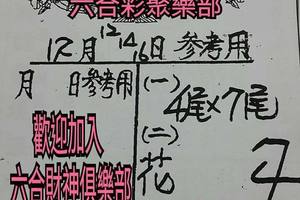 六合彩聚樂部
12月12 14 16日參考用
月 日參考用
(一)
4尾×7尾
(二)
花
歡迎加入
六合財神俱樂部